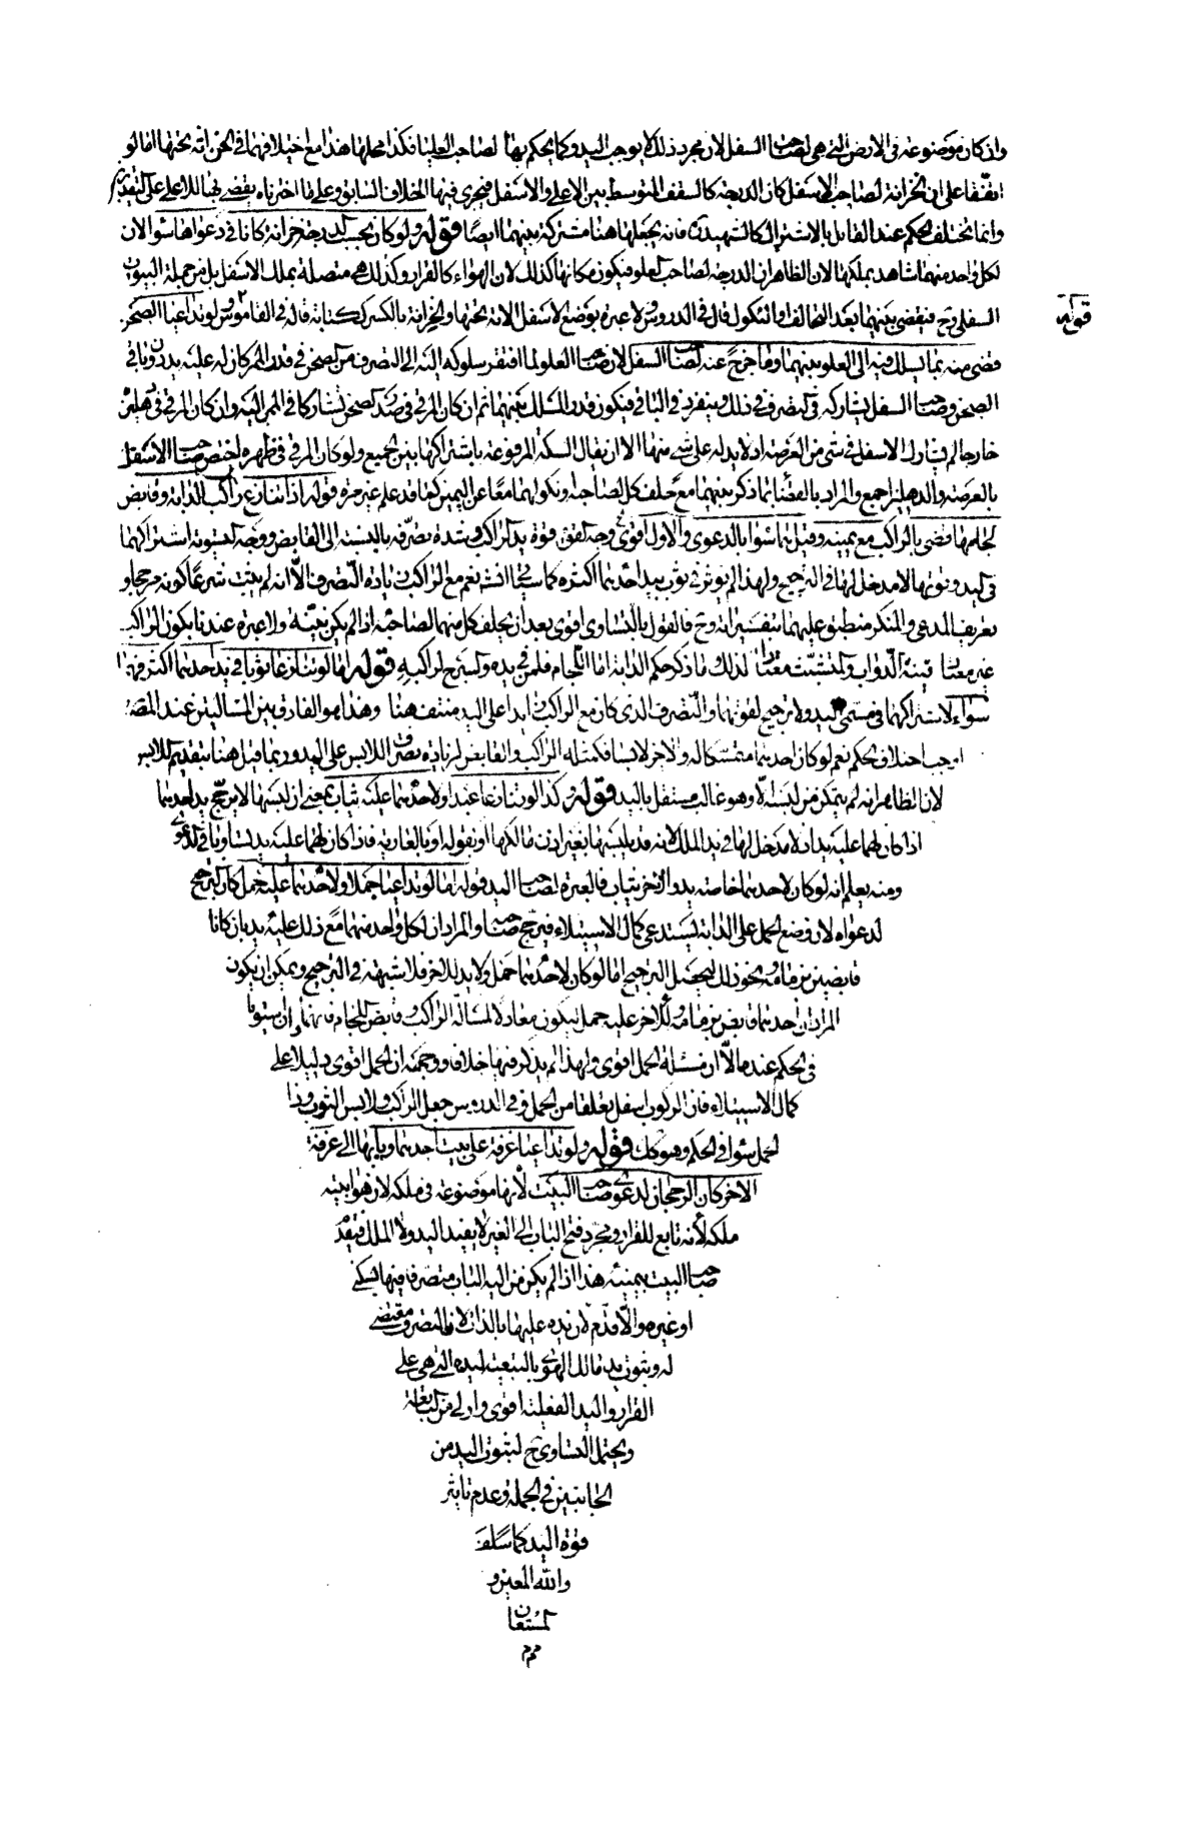 وان كان موضوعه فى الارض التى هى لصاحب السفل لان مجرد ذلك لا يوجب اليد وكما يحكم بها لصاحب العليا فكذا محلها هذا مع اختلافهما فى الخزانة تحتها اما لو
اتفقا على ان الخزانة لصاحب الاسفل كان الدرجة كالسقف المتوسط بين الاعلى والاسفل فيجرى فيها الخلاف السابق وعلى ما اخترناه يقضى بها للاعلى على التقديرين
وانما يختلف الحكم عند القائل بالاشتراك كالشهيد فانه يجعلها هنا مشتركة بينهما ايضا قوله ولو كان تحت الدرجة خزانة كانا فى دعواها سواء لان
لكل واحد منهما شاهد بملكها لان الظاهر ان الدرجة لصاحب العلو فيكون مكانها كذلك لان الهواء كالقرار وكذلك هى متصلة بملك الاسفل بل من جملة البيوت
السفلى وح فيقضى بينهما بعد التحالف او النكول قال فى الدروس ولا عبرة بوضع الاسفل الانة تحتها والخزانة بالكسر ككتابة قاله فى القاموس قوله ولو تداعيا الصحن
قوله
قضى منه بما يسلك فيه الى العلو بينهما وما خرج عنه لصاحب السفل لان صاحب العلو لما افتقر سلوكه اليه الى التصرف من الصحن فى قدر الممر كان له عليه يد دون باقى
الصحن وصاحب السفل يشاركه فى التصرف فى ذلك وينفرد فى الباقى فيكون قدر المسلك بينهما ثم ان كان المرقى فى صدر الصحن تشاركا فى الممر اليه وان كان المرقى فى دهليز
خارجا لم يشارك الاسفل فى شئ من العرصة اذ لا يد له على شئ منها الا ان يقال السكة المرفوعة باشتراكها بين الجميع ولو كان المرقى فى ظهره اختص صاحب الاسفل
بالعرصة والدهليز اجمع والمراد بالقضاء بما ذكر بينهما مع حلف كل لصاحبه ونكولهما معا عن اليمين كما قد علم غير مرة قوله اذا تنازع راكب الدابة وقابض
لجامها قضى بالراكب مع يمينه وقيل هما سواء بالدعوى والاول اقوى وجه القوة قوة يد الراكب وشدة تصرفه بالنسبة الى القابض ووجه التسوية اشتراكهما
فى اليد وقوتها لا مدخل لها فى الترجيح ولهذا لم يؤثر فى ثوب بيد احدهما اكثره كما سيجئ نعم مع الراكب زيادة التصرف الا انه لم يثبت شرعا كونه مرجحا و
تعريف المدعى والمنكر منطبق عليهما بتفسيراته وح فالقول بالتساوى اقوى بعد ان يحلف كل منهما لصاحبه اذا لم يكن بينة ولا عبرة عندنا بكون الراكب
غير معتاد قنية الدواب والمتشبث معتادا لذلك ما ذكر حكم الدابة اما اللجام فلمن فى يده والسرج لراكبه قوله اما لو تنازعا ثوبا فى يد احدهما اكثره فهما
سواء لاشتراكهما فى مسمى اليد ولا ترجيح لقوتهما والتصرف الذى كان مع الراكب زايدا على اليد منتف هنا وهذا هو الفارق بين المسالتين عند المص
اوجب اختلاف الحكم نعم لو كان احدهما متمسكا له والاخر لابسا فكمثله الراكب والقابض لزيادة تصرف اللابس على اليد وربما قيل هنا بتقديم اللابس
لان الظاهر انه لم يتمكن من لبسه الا وهو غالب مستقل باليد قوله وكذا لو تنازعا عبدا ولاحدهما عليه ثياب بمعنى ان لبسها لا يرجح يد احدهما
اذا كان لهما عليه يد اذ لا مدخل لها فى يد الملك لانه قد يلبسها بغير اذن مالكها او بقوله او بالعارية فاذا كان لهما عليه يد تساويا فى الدعوى
ومنه يعلم انه لو كان لاحدهما خاصة يد والاخر ثياب فالعبرة لصاحب اليد قوله اما لو تداعيا جملا ولاحدهما عليه حمل كان الترجيح
لدعواه لان وضع الحمل على الدابة يستدعى كمال الاستيلاء فيرجح صاحبه والمراد ان لكل واحد منهما مع ذلك عليه يد بان كانا
قابضين بزمامه ونحو ذلك ليحصل الترجيح اما لو كان لاحدهما حمل ولا يد للاخر فلا شبهة فى الترجيح ويمكن ان يكون
المراد ان احدهما قابض بزمامه وللاخر عليه حمل ليكون معادلا لمسالة الراكب وقابض اللجام فانهما وان استويا
فى الحكم عندها الا ان مسئلة الحمل اقوى ولهذا لم يذكر فيها خلافا ووجهه ان الحمل اقوى دليلا على
كمال الاستيلاء فان الركوب اسهل تعلقا من الحمل وفى الدروس جعل الراكب ولابس الثوب وذا
الحمل سواء فى الحكم وهو كك قوله ولو تداعيا غرفة على بيت احدهما وبابها الى غرفة
الاخر كان الرجحان لدعوى صاحب البيت لانها موضوعه فى ملكه لان هواء بيته
ملكه لانه تابع للقرار ومجرد فتح الباب الى الغير لا يفيد اليد ولا الملك فيقدم
صاحب البيت بيمينه هذا اذا لم يكن من اليه الباب متصرفا فيها بسكنى
او غيره والا قدم لان يده عليها بالذات لان التصرف مقتضى
له وبثبوت يد مالك الهواء بالتبعية ليده التى هى على
القرار واليد الفعلية اقوى واولى من التابعة
ويحتمل التساوى ح لثبوت اليد من
الجانبين فى الجملة وعدم تاثير
قوة اليد كما سلف
والله المعين و
المستعان
م م